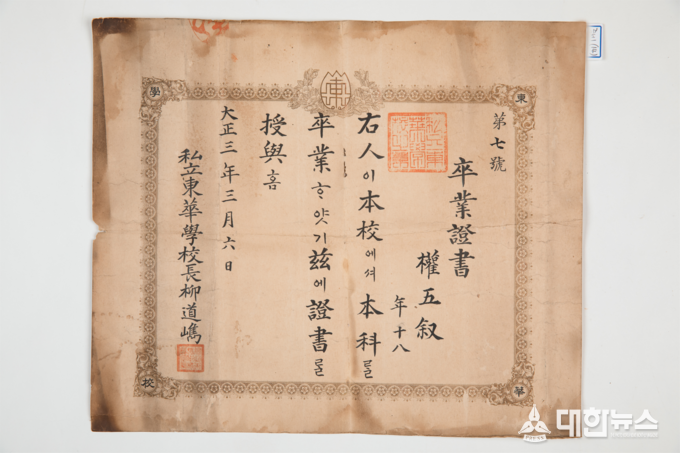 第七號
卒業證書
權五敍
年十八
右人이本校에셔本科를
卒業ᄒᆞ얏기玆에證書를
授與홈
大正三年三月六日
私立東華學校長柳道
東
華
學
校
대한뉴스
PRESS